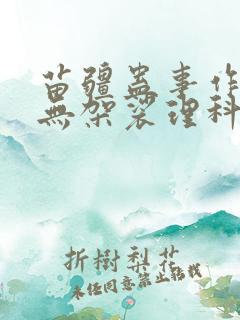 苗疆蠱事作
無架裟理科
折樹梨花
未经同意禁止转载